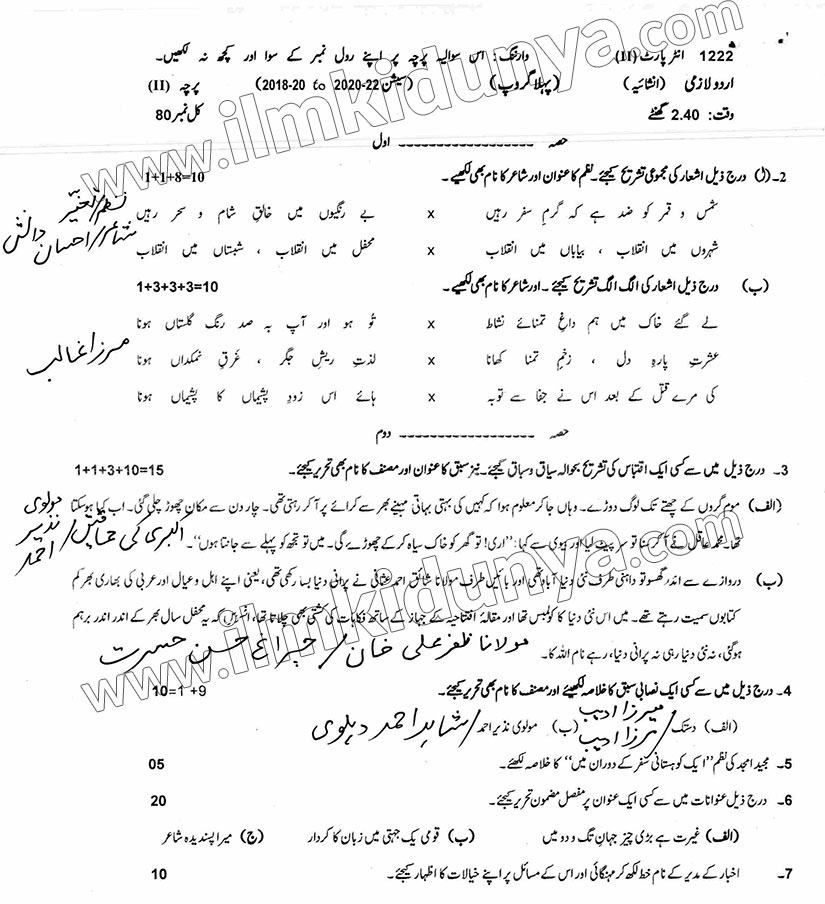 1222 انٹر پارٹ (II) وارننگ: اس سوالیہ پرچہ پر اپنے رول نمبر کے سوا اور کچھ نہ لکھیں۔
اردو لازمی (انشائیہ) (پہلا گروپ) (سیشن 2018-20 to 2020-22) پرچہ (II)
وقت: 2.40 گھنٹے کل نمبر 80
حصہ ------------------- اول
2۔ (ا) درج ذیل اشعار کی مجموعی تشریح کیجئے۔ نظم کا عنوان اور شاعر کا نام بھی لکھیے۔ 1+1+8=10
شمس و قمر کو ضد ہے کہ گرمِ سفر رہیں x بے رنگیوں میں خالقِ شام و سحر رہیں
شہروں میں انقلاب ، بیاباں میں انقلاب x محفل میں انقلاب ، شبستاں میں انقلاب
نظم/تغیّر
شاعر/احسان دانش
(ب) درج ذیل اشعار کی الگ الگ تشریح کیجئے ۔ اور شاعر کا نام بھی لکھیے۔ 1+3+3+3=10
لے گئے خاک میں ہم داغِ تمنائے نشاط x تُو ہو اور آپ بہ صد رنگ گلستاں ہونا
عشرتِ پارہِ دل ، زخمِ تمنا کھانا x لذتِ ریشِ جگر ، غرقِ نمکداں ہونا
مرزا غالب
کی مرے قتل کے بعد اس نے جفا سے توبہ x ہائے اس زودِ پشیماں کا پشیماں ہونا
حصہ ------------------- دوم
3۔ درج ذیل میں سے کسی ایک اقتباس کی تشریح بحوالہ سیاق و سباق کیجئے۔ نیز سبق کا عنوان اور مصنف کا نام بھی تحریر کیجئے۔ 1+1+3+10=15
(الف) موم گروں کے چھتے تک لوگ دوڑے۔ وہاں جا کر معلوم ہوا کہ کہیں کی بہتی بہاتی مہینے بھر سے کرائے پر آ کر رہتی تھی۔ چار دن سے مکان چھوڑ چلی گئی۔ اب کیا ہو سکتا
تھا۔ محمد عاقل نے آ کر سنا تو سر پیٹ لیا اور بیوی سے کہا: "اری! تو گھر کو خاک سیاہ کر کے چھوڑے گی۔ میں تو تجھ کو پہلے سے جانتا ہوں"۔
اکبری کی حماقتیں/مولوی نذیر احمد
(ب) دروازے سے اندر گھسو تو داہنی طرف نئی دنیا آباد تھی اور بائیں طرف مولانا شائق احمد عثمانی نے پرانی دنیا بسا رکھی تھی، یعنی اپنے اہل و عیال اور عربی کی بھاری بھر کم
کتابوں سمیت رہتے تھے۔ میں اس نئی دنیا کا کولمبس تھا اور مقالہ افتتاحیہ کے جہاز کے ساتھ فکاہات کی کشتی بھی چلاتا تھا، افسوس کہ یہ محفل سال بھر کے اندر اندر برہم
ہو گئی، نہ نئی دنیا رہی نہ پرانی دنیا، رہے نام اللہ کا۔
مولانا ظفر علی خان/چراغ حسن حسرت
4۔ درج ذیل میں سے کسی ایک نصابی سبق کا خلاصہ لکھیئے اور مصنف کا نام بھی تحریر کیجئے۔ 10=1+9
(الف) دستک/میرزا ادیب مرزا ادیب (ب) مولوی نذیر احمد/شاہد احمد دہلوی
5۔ مجید امجد کی نظم "ایک کوہستانی سفر کے دوران میں" کا خلاصہ لکھئے۔ 05
6۔ درج ذیل عنوانات میں سے کسی ایک عنوان پر مفصل مضمون تحریر کیجئے۔ 20
(الف) غیرت ہے بڑی چیز جہانِ تگ و دو میں (ب) قومی یک جہتی میں زبان کا کردار (ج) میرا پسندیدہ شاعر
7۔ اخبار کے مدیر کے نام خط لکھ کر مہنگائی اور اس کے مسائل پر اپنے خیالات کا اظہار کیجئے۔ 10
www.ilmkidunya.com
www.ilmkidunya.com